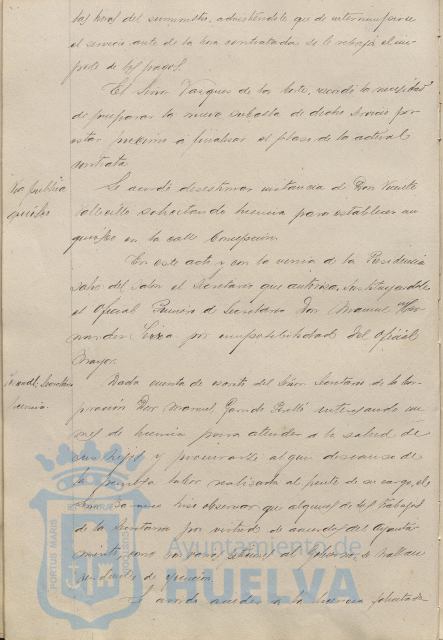 las horas del suministro, advirtiéndole que de interrumpirse
el servicio antes de la hora contratada se le rebaja el im-
porte de los pagos.
El Señor Vazquez de la Corte, recordó la necesidad
de preparar la nueva subasta de dicho servicio por
estar próximo á finalizar el plazo de la actual
contrata
Via publica
quioscos
Se acordó desestimar instancia de Don Vicente
solicitando licencia para establecer un
quiosco en la calle Concepcion.
En este acto y con la venia de la Presidencia
salió del Salon el Secretario que autoriza, sustituyendole
el Oficial Primero de Secretaria Don Manuel Her-
nandez por imposibilidad del Oficial
Mayor.
Secretario
licencia
Dada cuenta de escrito del Señor Secretario de la Cor-
poración Don Manuel Garrido Perelló interesando un
mes de licencia para atender á la salud de
sus hijos y procurarse algun descanso de
la penosa labor realizada al frente de su cargo, el
hizo observar que algunos de los trabajos
de la Secretaria por virtud de acuerdos del Ayunta-
miento, como del Gobierno, se hallan
pendientes de
Se acordó acceder a la licencia solicitada
PORTUS MARIS
ET TERRAE
CUSTODIA
Ayuntamiento de
HUELVA